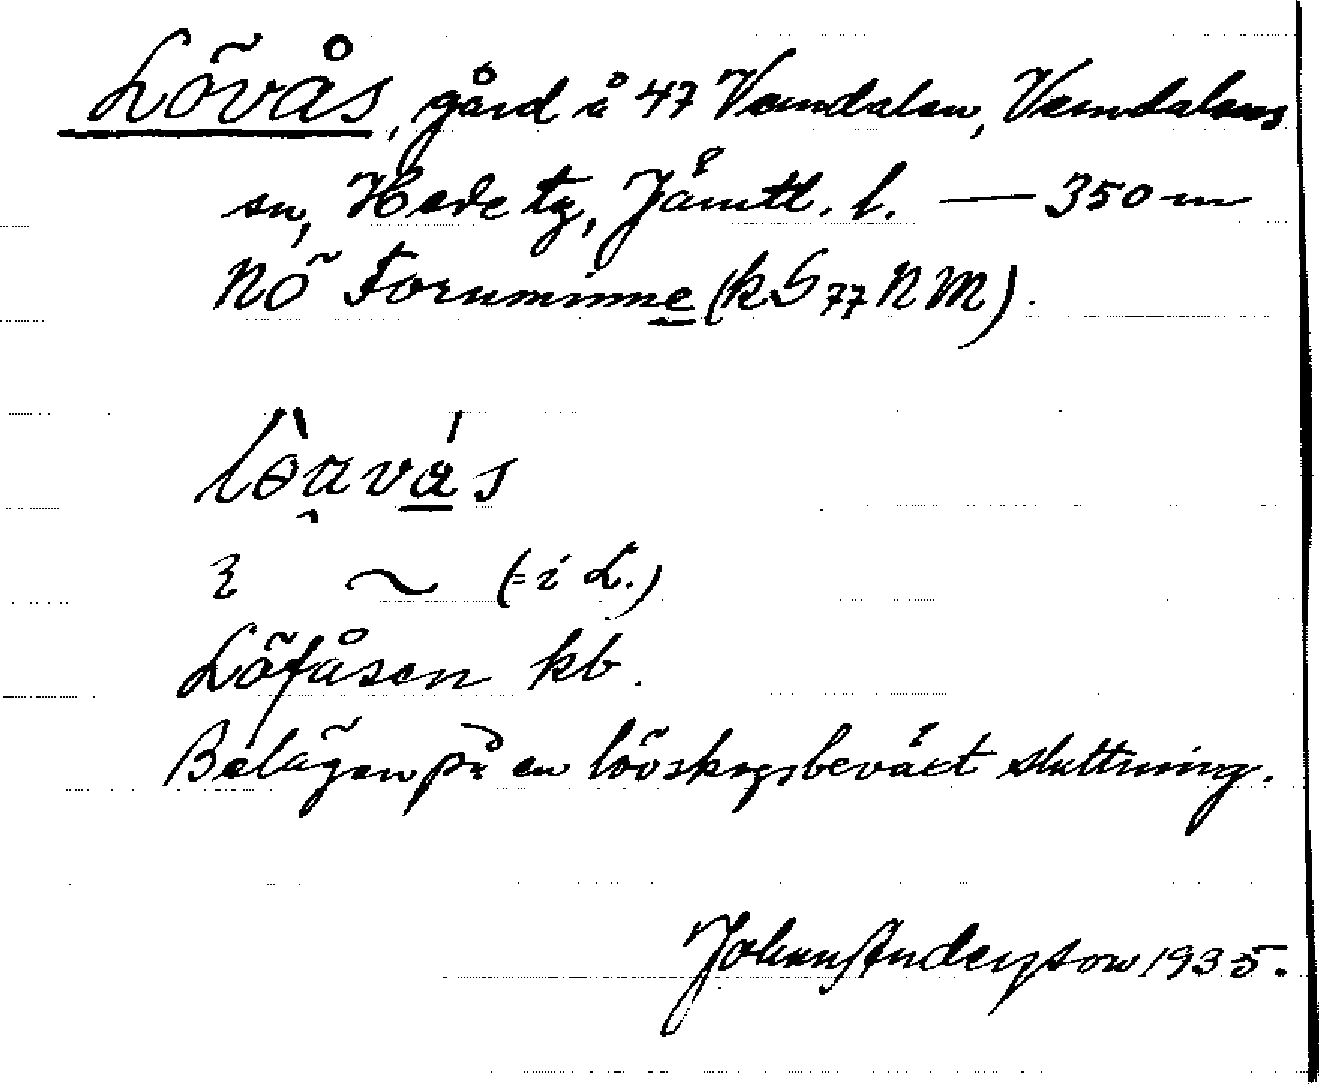 Lövås, gård å 47 Vemdalen, Vemdalens
sn, Hede tg, Jämtl. l. — 350 m
NÖ Fornminne (k S 77 NM).
~ (= i L.)
Löfåsen kb.
Belägen på en lövskogsbeväxt sluttning.
Johan Andersson 1935.